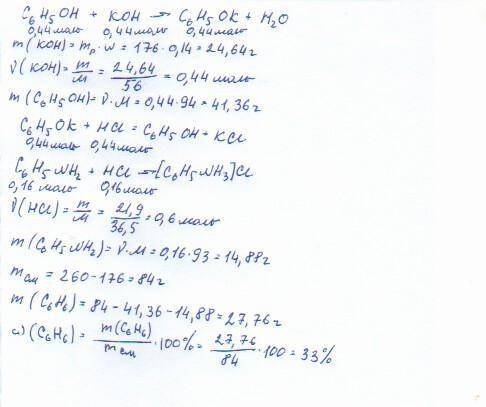 C₆H₅OH + KOH → C₆H₅OK + H₂O
0,44моль 0,44моль 0,44моль
m(KOH)=mр·w=176·0,14=24,64г
ν(KOH)=m/M=24,64/56=0,44моль
m(C₆H₅OH)=ν·M=0,44·94=41,36г
C₆H₅OK+HCl=C₆H₅OH+KCl
0,44моль 0,44моль
C₆H₅NH₂+HCl→[C₆H₅NH₃]Cl
0,16моль 0,16моль
ν(HCl)=m/M=21,9/36,5=0,6моль
m(C₆H₅NH₂)=ν·M=0,16·93=14,88г
mсм=260-176=84г
m(C₆H₆)=84-41,36-14,88=27,76г
ω(C₆H₆)=m(C₆H₆)/mсм·100%=27,76/84·100=33%